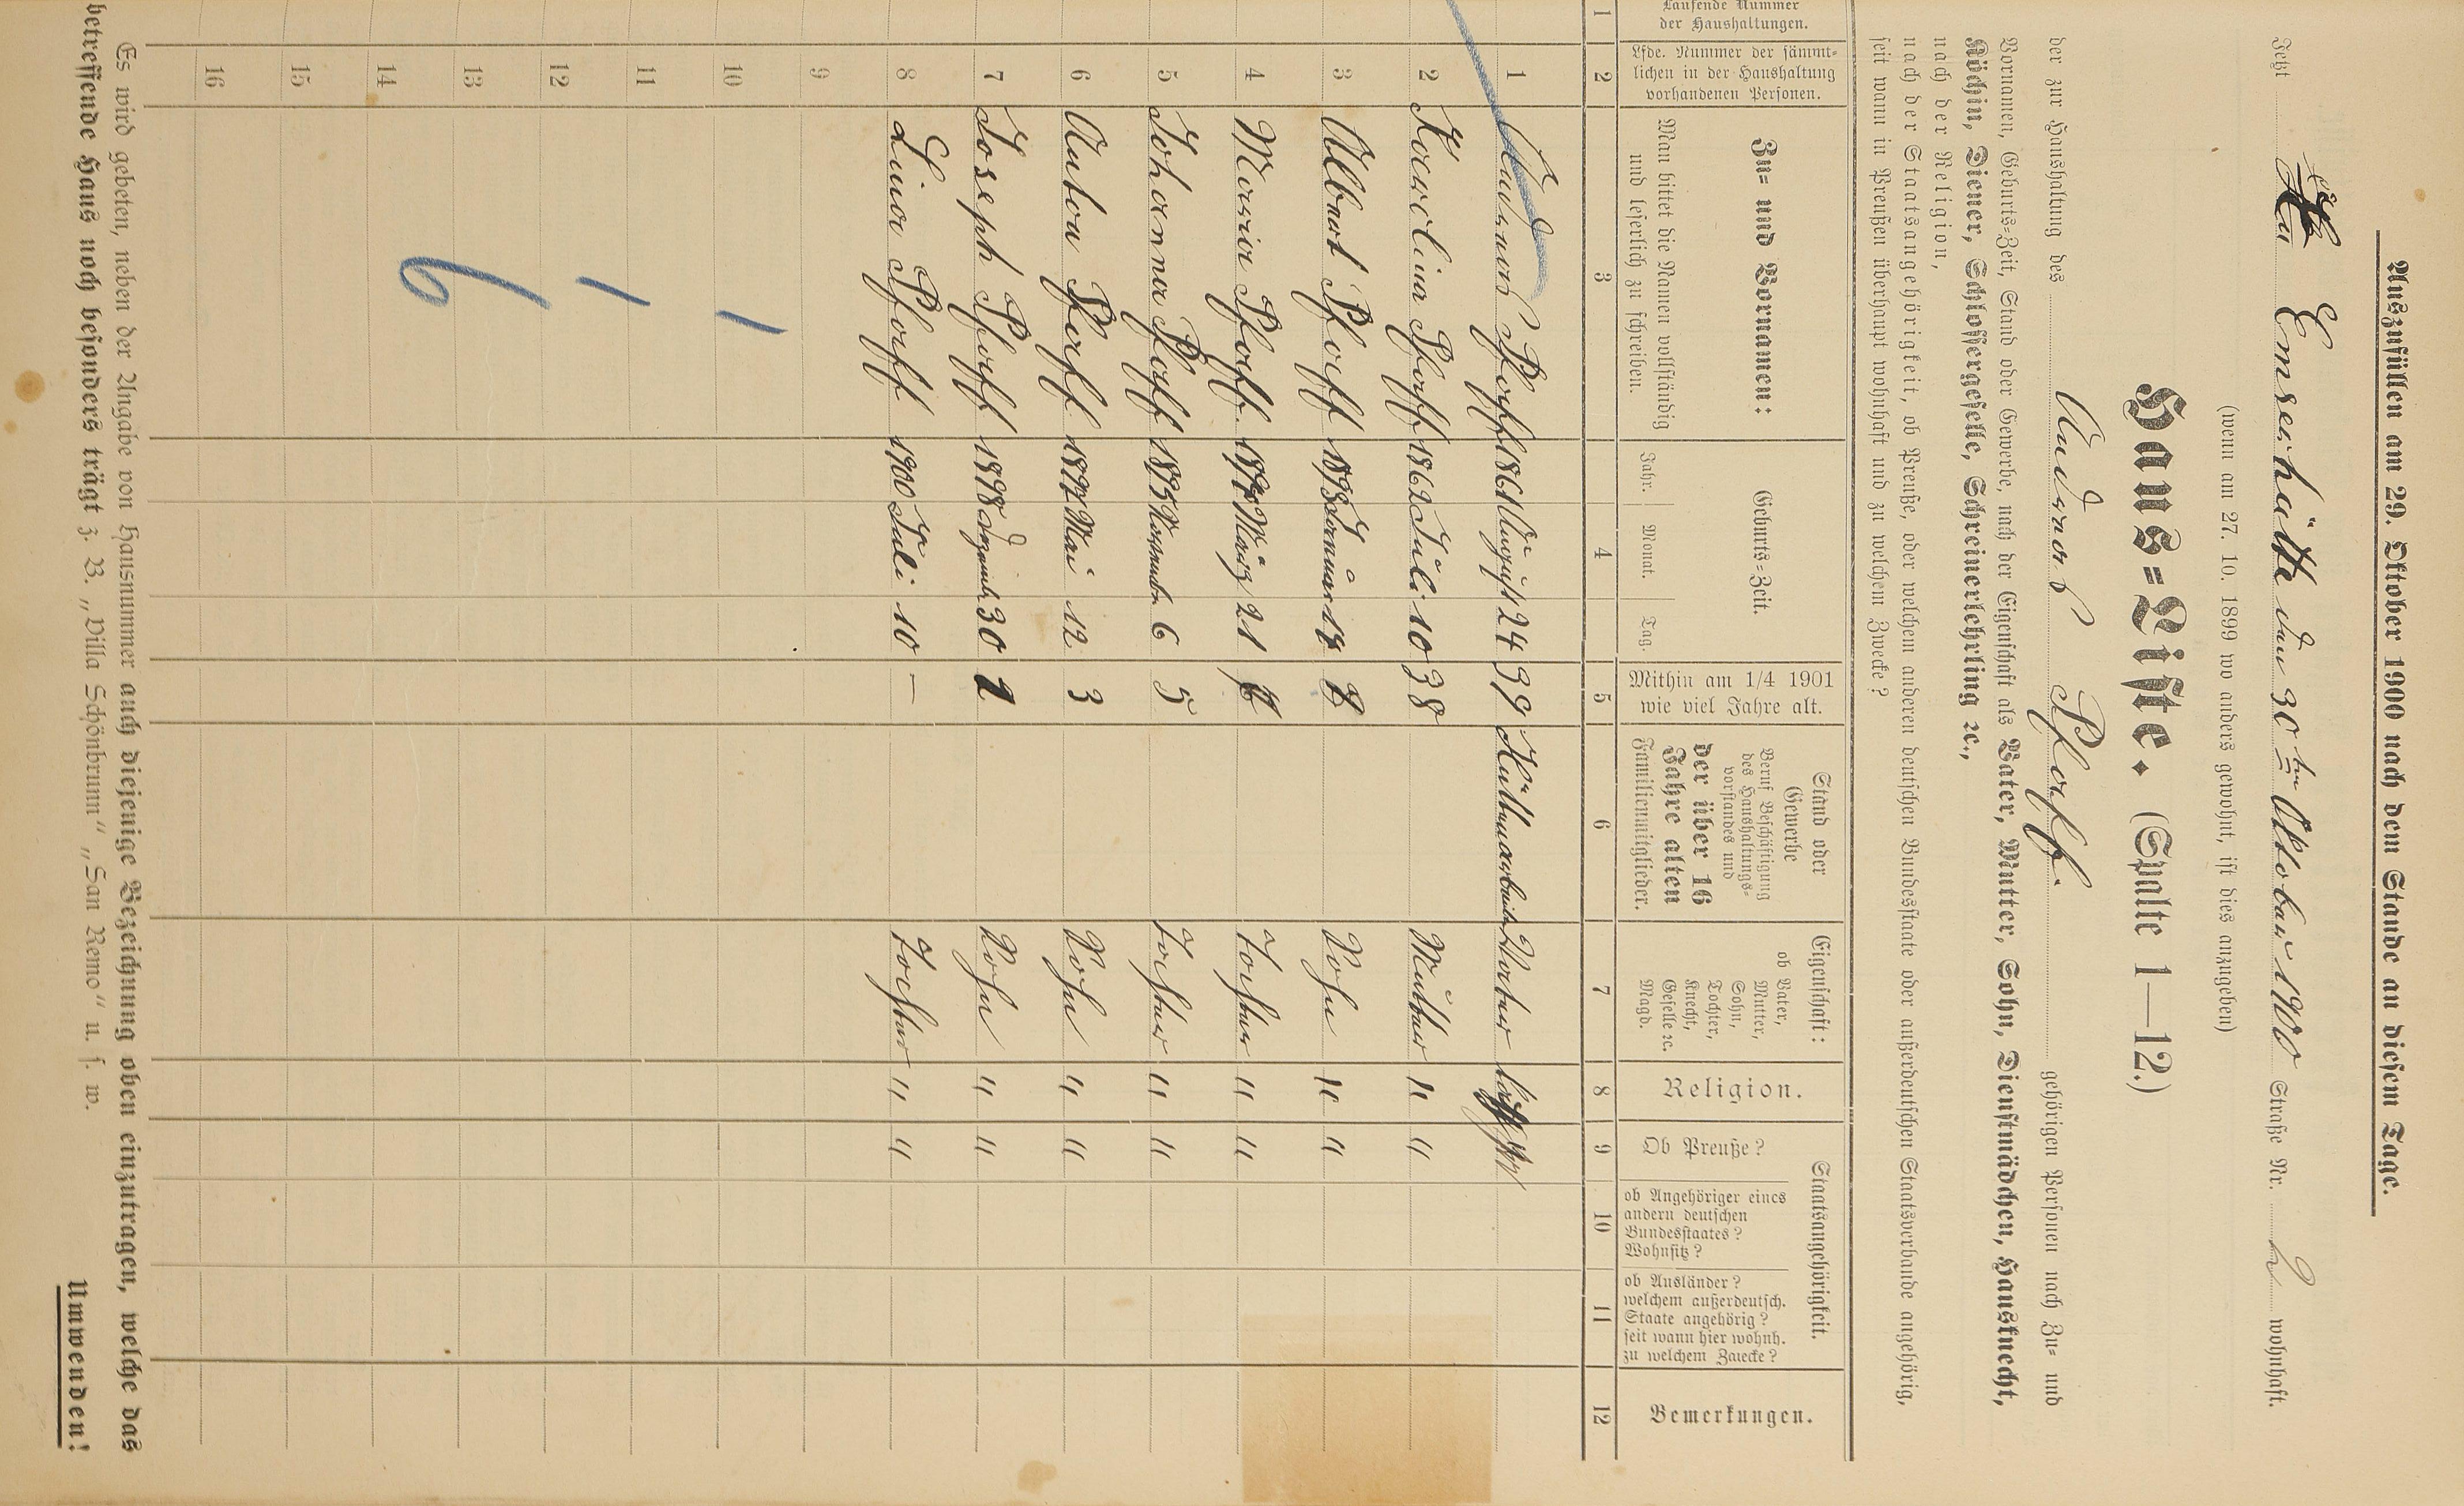 Auszufüllen am 29. Oktober 1900 nach dem Stande an diesem Tage.
Jetzt Emserhütte den 30ten Oktober 1900 Straße Nr. wohnhaft.
(wenn am 27. 10. 1899 wo anders gewohnt, ist dies anzugeben)
Haus=Liste. (Spalte 1—12.)
der zur Haushaltung des Andreas Pfaff. gehörigen Personen nach Zu= und
Vornamen, Geburts=Zeit, Stand oder Gewerbe, nach der Eigenschaft als Vater, Mutter, Sohn, Dienstmädchen, Hausknecht,
Köchin, Diener, Schlossergeselle, Schreinerlehrling ꝛc.,
nach der Religion,
nach der Staatsangehörigkeit, ob Preuße, oder welchem anderen deutschen Bundesstaate oder außerdeutschen Staatsverbande angehörig,
seit wann in Preußen überhaupt wohnhaft und zu welchem Zwecke?
Laufende Nummer
der Haushaltungen.
Lfde. Nummer der sämmt=
lichen in der Haushaltung
vorhandenen Personen.
Zu= und Vornamen:
Man bittet die Namen vollständig
und leserlich zu schreiben.
Geburts=Zeit.
Jahr. Monat. Tag.
Mithin am 1/4 1901
wie viel Jahre alt.
Stand oder
Gewerbe
Beruf Beschäftigung
des Haushaltungs=
vorstandes und
der über 16
Jahre alten
Familienmitglieder.
Eigenschaft:
ob Vater,
Mutter,
Sohn,
Tochter,
Knecht,
Geselle ꝛc.
Magd.
Religion.
Staatsangehörigkeit.
Ob Preuße?
ob Angehöriger eines
andern deutschen
Bundesstaates?
Wohnsitz?
ob Ausländer?
welchem außerdeutsch.
Staate angehörig?
seit wann hier wohnh.
zu welchem Zwecke?
Bemerkungen.
1 2 3 4 5 6 7 8 9 10 11 12
1 Andreas Pfaff 1861 August 24 39 Hüttenarbeiter Vater kath
2 Karolina Pfaff 1862 Juli 10 38 Mutter " "
3 Albert Pfaff 1893 Januar Sohn " "
4 Maria Pfaff. März 21 Tochter " "
5 Johanna Pfaff 1895 November 6 5 Tochter " "
6 Anton Pfaff 1897 Mai 12 3 Sohn " "
7 Joseph Pfaff 1898 Dezember 30 Sohn " "
8 Lina Pfaff 1900 Juli 10 — Tochter " "
9
10
11
12
13
14
15
16
1
1
6
Es wird gebeten, neben der Angabe von Hausnummer auch diejenige Bezeichnung oben einzutragen, welche das
betreffende Haus noch besonders trägt z. B. „Villa Schönbrunn“ „San Remo“ u. s. w.
Umwenden!